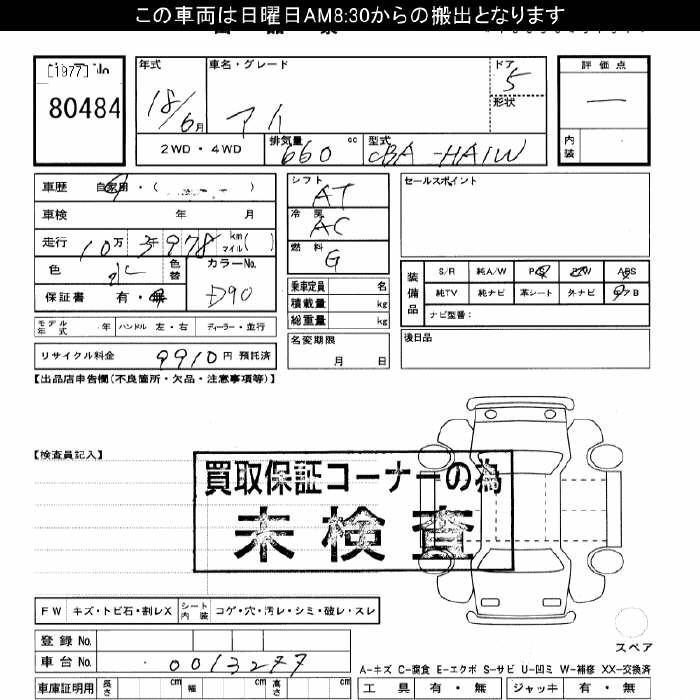 この車両は日曜日AM8:30からの搬出となります
[1977] No
80484
年式 車名・グレード ドア
18/6月 アイ 5
形状
2WD・4WD 排気量 660 cc 型式 CBA-HA1W
評価点
—
内装
車歴 自家用・( )
車検 年 月
走行 10万3千978 km マイル( )
色 水 色替 カラーNo. D90
保証書 有・無
モデル年式 年 ハンドル 左・右 ディーラー・並行
リサイクル料金 9910円 預託済
シフト AT
冷房 AC
燃料 G
乗車定員 名
積載量 kg
総重量 kg
名変期限 月 日
セールスポイント
装備品 S/R 純A/W P/S P/W ABS
純TV 純ナビ 革シート 外ナビ エアB
ナビ型番:
後日品
【出品店申告欄(不良箇所・欠品・注意事項等)】
【検査員記入】
買取保証コーナーの為
未検査
FW キズ・トビ石・割レX シート内装 コゲ・穴・汚レ・シミ・破レ・スレ
登録No.
車台No. 0013277
車庫証明用 長さ cm 幅 cm 高さ cm
スペア
A-キズ C-腐食 E-エクボ S-サビ U-凹ミ W-補修 XX-交換済
工具 有・無 ジャッキ 有・無